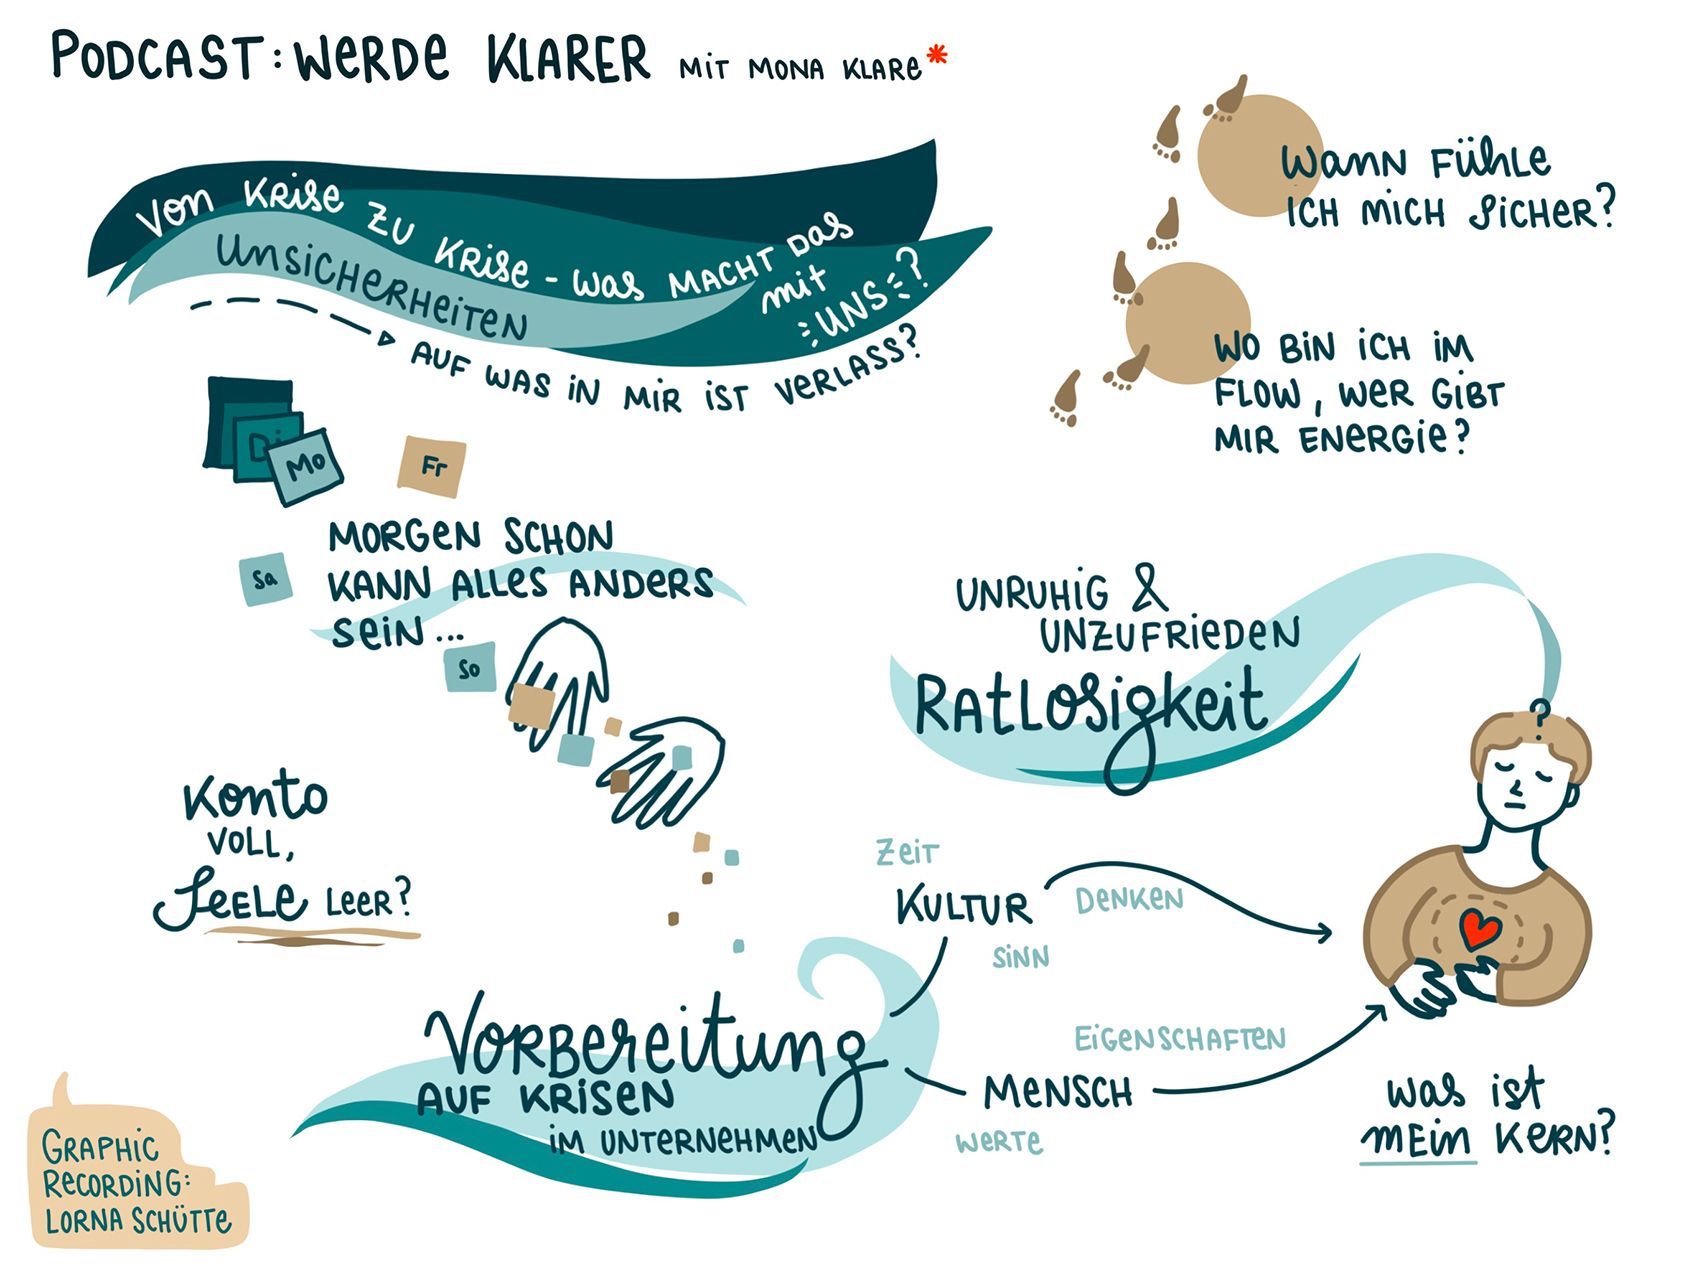 PODCAST: WERDE KLARER MIT MONA KLARE*
VON KRISE ZU KRISE - WAS MACHT DAS
mit
UNS?
UNSICHERHEITEN
AUF WAS IN MIR IST VERLASS?
Di
Mo
Fr
Sa
So
MORGEN SCHON
KANN ALLES ANDERS
SEIN...
WANN FÜHLE
ICH MICH SICHER?
WO BIN ICH IM
FLOW, WER GIBT
MIR ENERGIE?
UNRUHIG &
UNZUFRIEDEN
RATLOSIGKEIT
?
KONTO
VOLL,
SEELE LEER?
ZEIT
KULTUR
DENKEN
SINN
VORBEREITUNG
AUF KRISEN
IM UNTERNEHMEN
EIGENSCHAFTEN
MENSCH
WERTE
WAS IST
MEIN KERN?
GRAPHIC
RECORDING:
LORNA SCHÜTTE